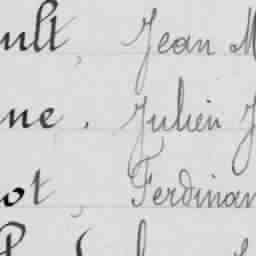 ult, Jean M
ne. Julien J
ot, Ferdinan